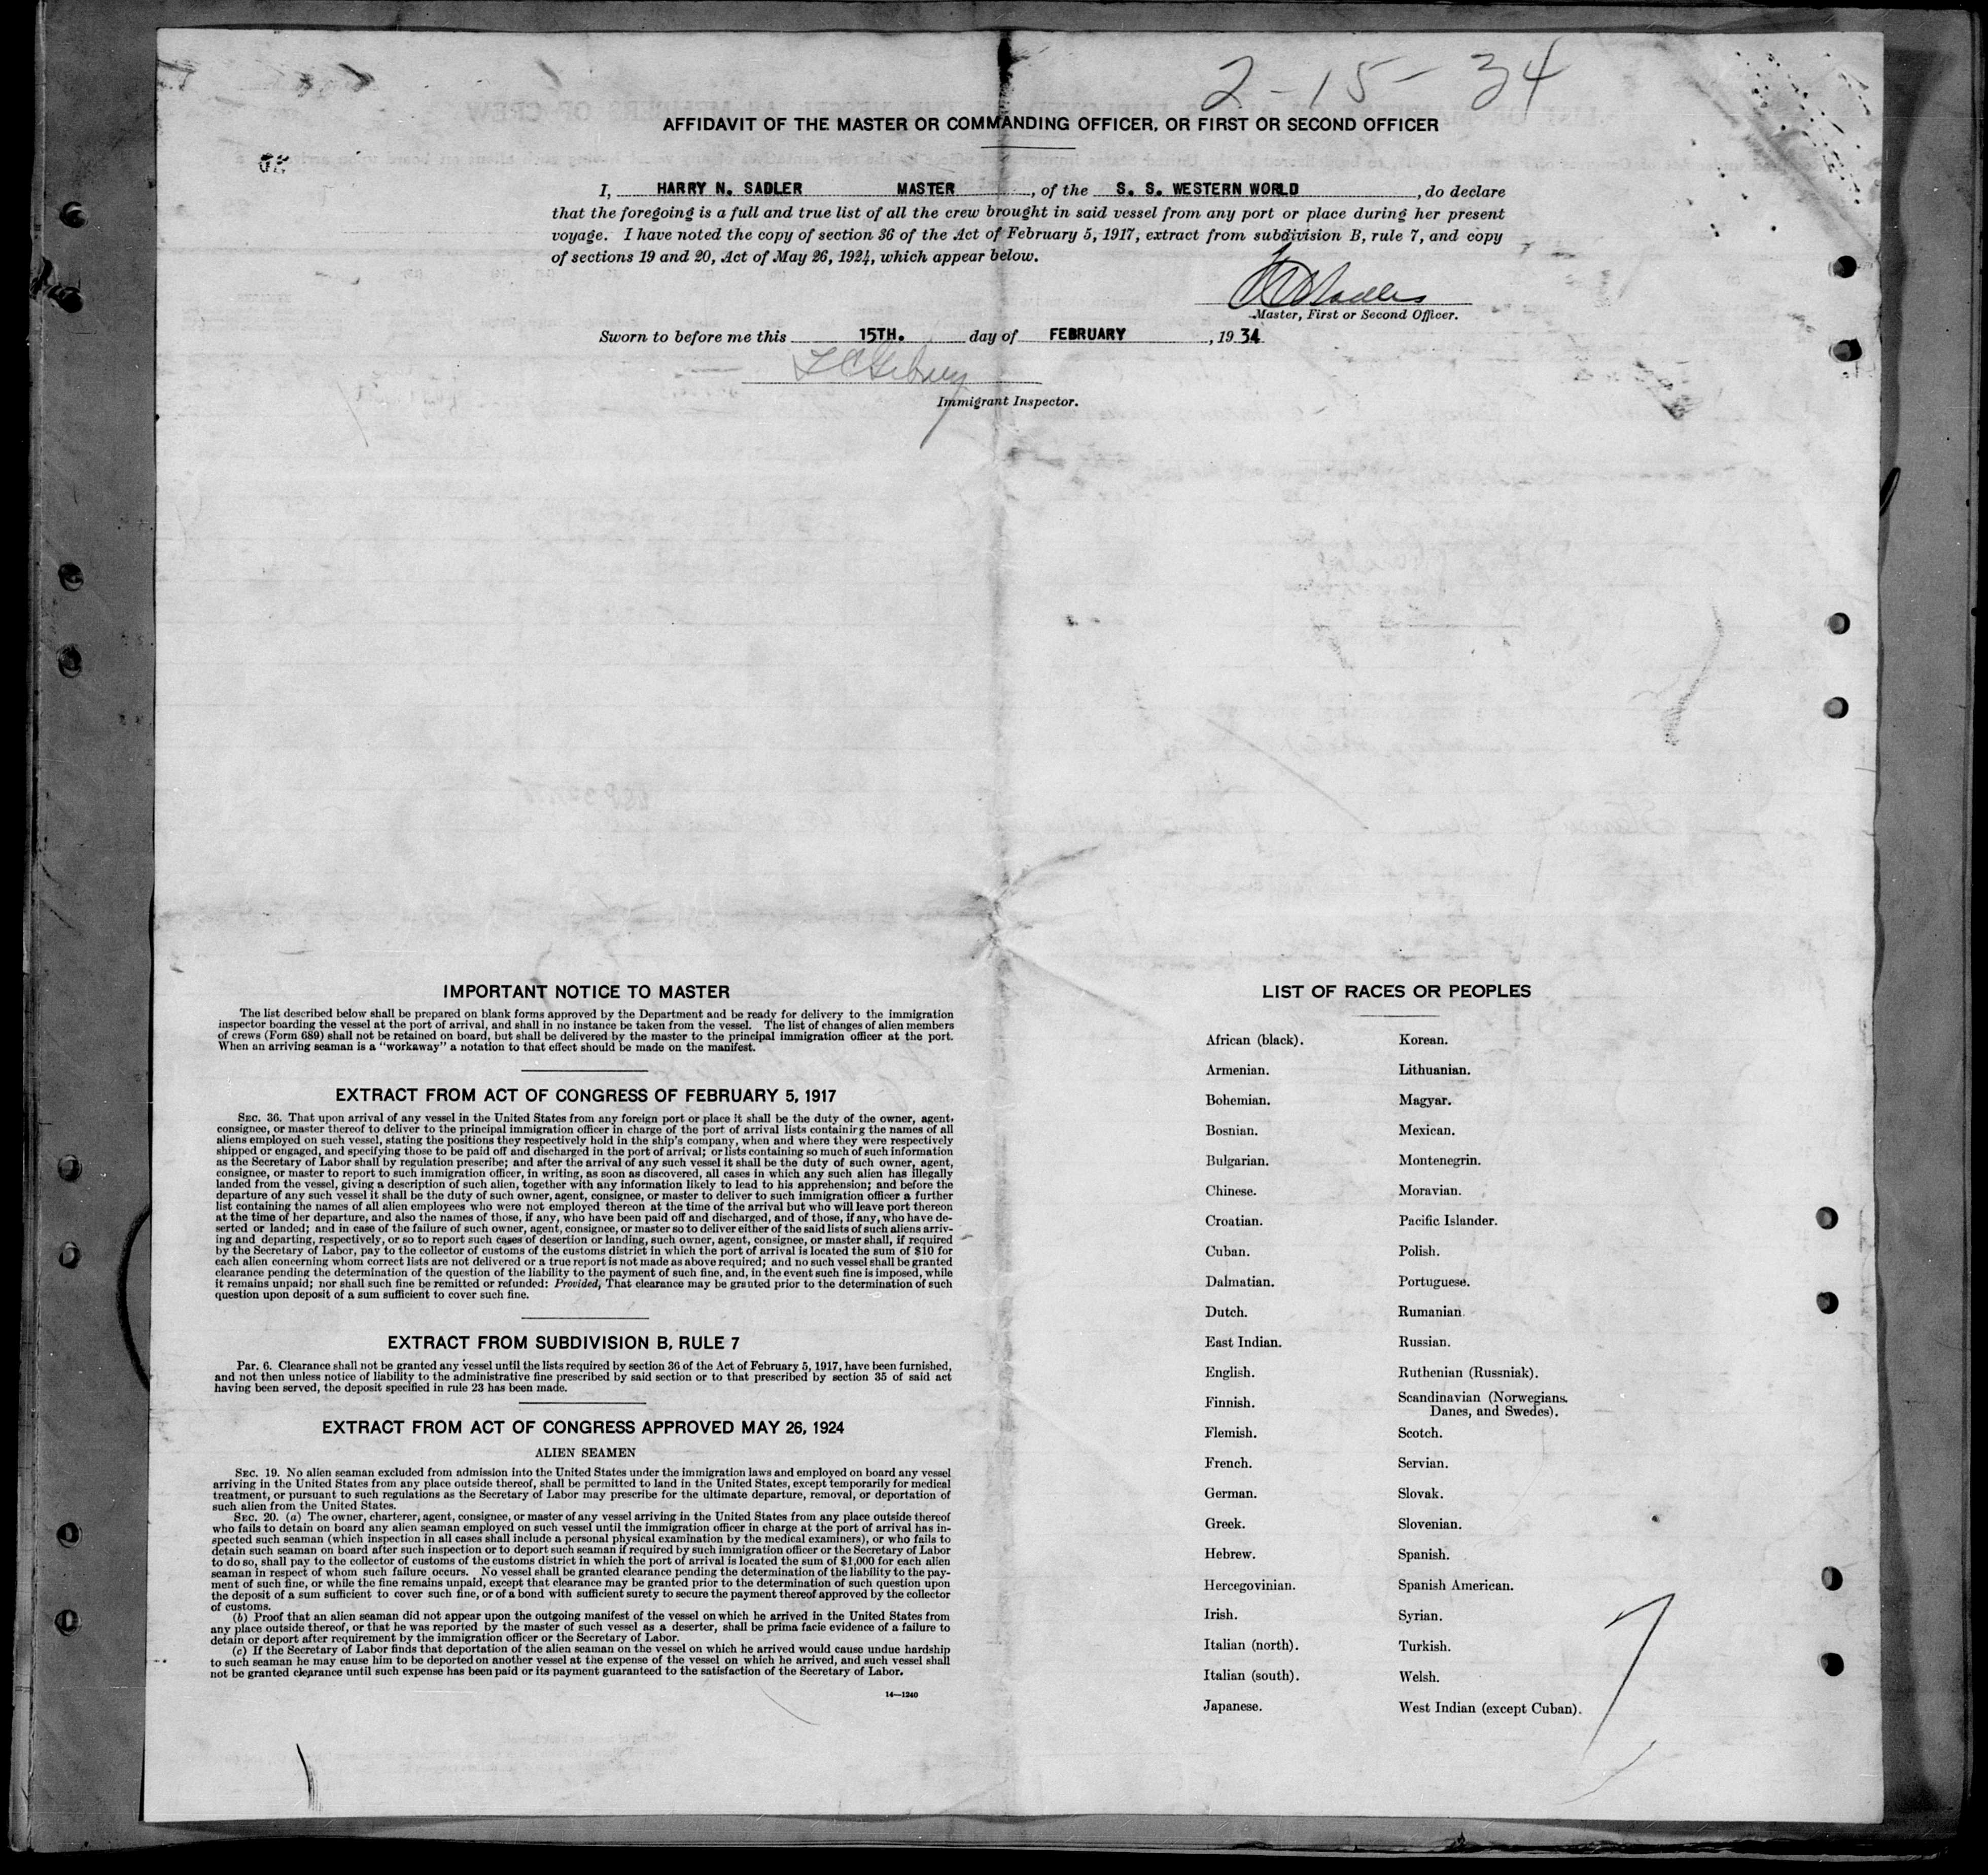 2-15-34
AFFIDAVIT OF THE MASTER OR COMMANDING OFFICER, OR FIRST OR SECOND OFFICER
I, HARRY N. SADLER MASTER, of the S. S. WESTERN WORLD, do declare
that the foregoing is a full and true list of all the crew brought in said vessel from any port or place during her present
voyage. I have noted the copy of section 36 of the Act of February 5, 1917, extract from subdivision B, rule 7, and copy
of sections 19 and 20, Act of May 26, 1924, which appear below.
Sadler
Master, First or Second Officer.
Sworn to before me this 15TH. day of FEBRUARY, 1934
Immigrant Inspector.
IMPORTANT NOTICE TO MASTER
The list described below shall be prepared on blank forms approved by the Department and be ready for delivery to the immigration
inspector boarding the vessel at the port of arrival, and shall in no instance be taken from the vessel. The list of changes of alien members
of crews (Form 689) shall not be retained on board, but shall be delivered by the master to the principal immigration officer at the port.
When an arriving seaman is a "workaway" a notation to that effect should be made on the manifest.
EXTRACT FROM ACT OF CONGRESS OF FEBRUARY 5, 1917
SEC. 36. That upon arrival of any vessel in the United States from any foreign port or place it shall be the duty of the owner, agent,
consignee, or master thereof to deliver to the principal immigration officer in charge of the port of arrival lists containing the names of all
aliens employed on such vessel, stating the positions they respectively hold in the ship's company, when and where they were respectively
shipped or engaged, and specifying those to be paid off and discharged in the port of arrival; or lists containing so much of such information
as the Secretary of Labor shall by regulation prescribe; and after the arrival of any such vessel it shall be the duty of such owner, agent,
consignee, or master to report to such immigration officer, in writing, as soon as discovered, all cases in which any such alien has illegally
landed from the vessel, giving a description of such alien, together with any information likely to lead to his apprehension; and before the
departure of any such vessel it shall be the duty of such owner, agent, consignee, or master to deliver to such immigration officer a further
list containing the names of all alien employees who were not employed thereon at the time of the arrival but who will leave port thereon
at the time of her departure, and also the names of those, if any, who have been paid off and discharged, and of those, if any, who have de-
serted or landed; and in case of the failure of such owner, agent, consignee, or master so to deliver either of the said lists of such aliens arriv-
ing and departing, respectively, or so to report such cases of desertion or landing, such owner, agent, consignee, or master shall, if required
by the Secretary of Labor, pay to the collector of customs of the customs district in which the port of arrival is located the sum of $10 for
each alien concerning whom correct lists are not delivered or a true report is not made as above required; and no such vessel shall be granted
clearance pending the determination of the question of the liability to the payment of such fine, and, in the event such fine is imposed, while
it remains unpaid; nor shall such fine be remitted or refunded: Provided, That clearance may be granted prior to the determination of such
question upon deposit of a sum sufficient to cover such fine.
EXTRACT FROM SUBDIVISION B, RULE 7
Par. 6. Clearance shall not be granted any vessel until the lists required by section 36 of the Act of February 5, 1917, have been furnished,
and not then unless notice of liability to the administrative fine prescribed by said section or to that prescribed by section 35 of said act
having been served, the deposit specified in rule 23 has been made.
EXTRACT FROM ACT OF CONGRESS APPROVED MAY 26, 1924
ALIEN SEAMEN
SEC. 19. No alien seaman excluded from admission into the United States under the immigration laws and employed on board any vessel
arriving in the United States from any place outside thereof, shall be permitted to land in the United States, except temporarily for medical
treatment, or pursuant to such regulations as the Secretary of Labor may prescribe for the ultimate departure, removal, or deportation of
such alien from the United States.
SEC. 20. (a) The owner, charterer, agent, consignee, or master of any vessel arriving in the United States from any place outside thereof
who fails to detain on board any alien seaman employed on such vessel until the immigration officer in charge at the port of arrival has in-
spected such seaman (which inspection in all cases shall include a personal physical examination by the medical examiners), or who fails to
detain such seaman on board after such inspection or to deport such seaman if required by such immigration officer or the Secretary of Labor
to do so, shall pay to the collector of customs of the customs district in which the port of arrival is located the sum of $1,000 for each alien
seaman in respect of whom such failure occurs. No vessel shall be granted clearance pending the determination of the liability to the pay-
ment of such fine, or while the fine remains unpaid, except that clearance may be granted prior to the determination of such question upon
the deposit of a sum sufficient to cover such fine, or of a bond with sufficient surety to secure the payment thereof approved by the collector
of customs.
(b) Proof that an alien seaman did not appear upon the outgoing manifest of the vessel on which he arrived in the United States from
any place outside thereof, or that he was reported by the master of such vessel as a deserter, shall be prima facie evidence of a failure to
detain or deport after requirement by the immigration officer or the Secretary of Labor.
(c) If the Secretary of Labor finds that deportation of the alien seaman on the vessel on which he arrived would cause undue hardship
to such seaman he may cause him to be deported on another vessel at the expense of the vessel on which he arrived, and such vessel shall
not be granted clearance until such expense has been paid or its payment guaranteed to the satisfaction of the Secretary of Labor.
14—1240
LIST OF RACES OR PEOPLES
African (black). Korean.
Armenian. Lithuanian.
Bohemian. Magyar.
Bosnian. Mexican.
Bulgarian. Montenegrin.
Chinese. Moravian.
Croatian. Pacific Islander.
Cuban. Polish.
Dalmatian. Portuguese.
Dutch. Rumanian
East Indian. Russian.
English. Ruthenian (Russniak).
Finnish. Scandinavian (Norwegians.
Danes, and Swedes).
Flemish. Scotch.
French. Servian.
German. Slovak.
Greek. Slovenian.
Hebrew. Spanish.
Hercegovinian. Spanish American.
Irish. Syrian.
Italian (north). Turkish.
Italian (south). Welsh.
Japanese. West Indian (except Cuban).